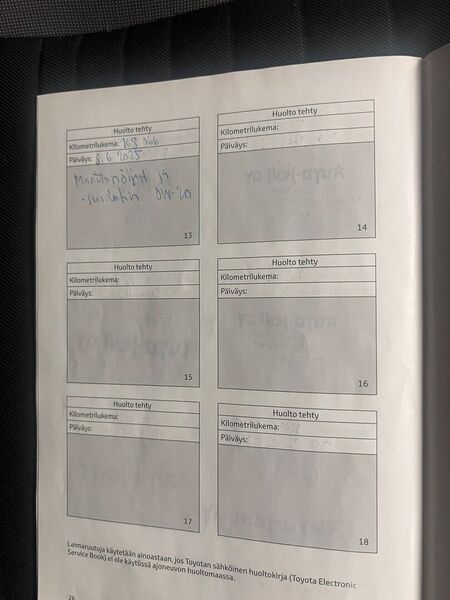 Huolto tehty
Kilometrilukema: 168 046
Päiväys: 8.6 2025
Moottoriöljyt ja
-suodatin 0W-20
13
Huolto tehty
Kilometrilukema:
Päiväys:
14
Huolto tehty
Kilometrilukema:
Päiväys:
15
Huolto tehty
Kilometrilukema:
Päiväys:
16
Huolto tehty
Kilometrilukema:
Päiväys:
17
Huolto tehty
Kilometrilukema:
Päiväys:
18
Leimaruutuja käytetään ainoastaan, jos Toyotan sähköinen huoltokirja (Toyota Electronic
Service Book) ei ole käytössä ajoneuvon huoltomaassa.
26